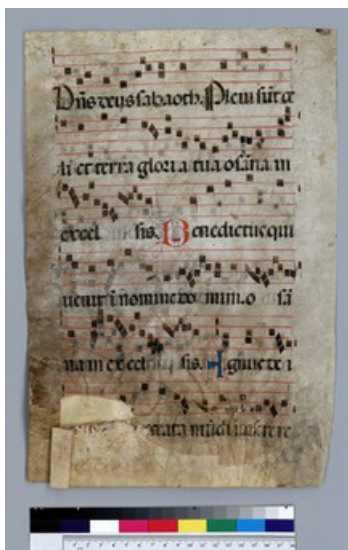 Dñs deus sabaoth. Pleni sũt ce
li et terra gloria tua osãna in
excel sis. Benedictus qui
uenit ĩ nomine do mini. o sã
na in excel sis. Agnus de i
peccata mũdi miserere